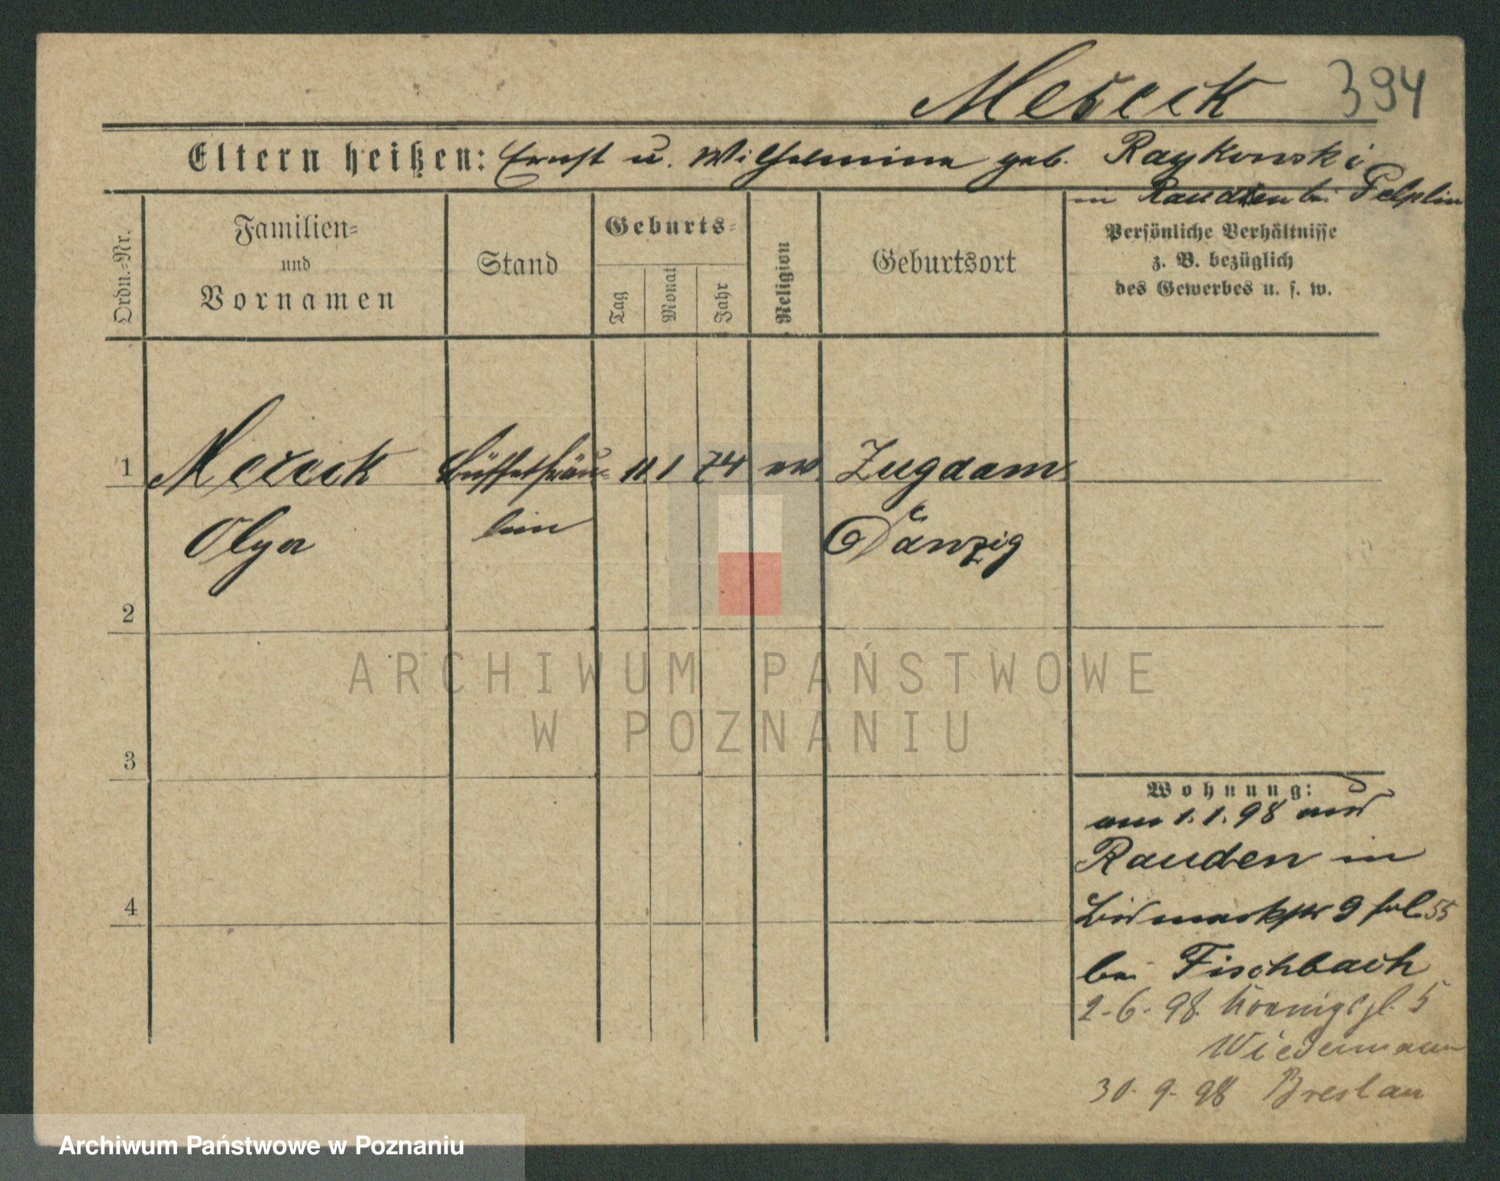 Mereck 394
Eltern heißen: Ernst u. Wilhelmine geb. Raykowski
in Rauden bei Pelplin
Ordn.=Nr.
Familien=
und
Vornamen
Stand
Geburts=
Tag
Monat
Jahr
Religion
Geburtsort
Persönliche Verhältnisse
z. B. bezüglich
des Gewerbes u. s. w.
1 Mereck Büffetfräu= 11 1 74 ev. Zugdam
Olga lein Danzig
2
ARCHIWUM PAŃSTWOWE
W POZNANIU
3
Wohnung:
am 1.1.98 aus
Rauden in
Bismarckstr 9
bei Fischbach
2.-6.-98. Koenigspl. 5
Wiedermann
30.9.98 Breslau
4
Archiwum Państwowe w Poznaniu